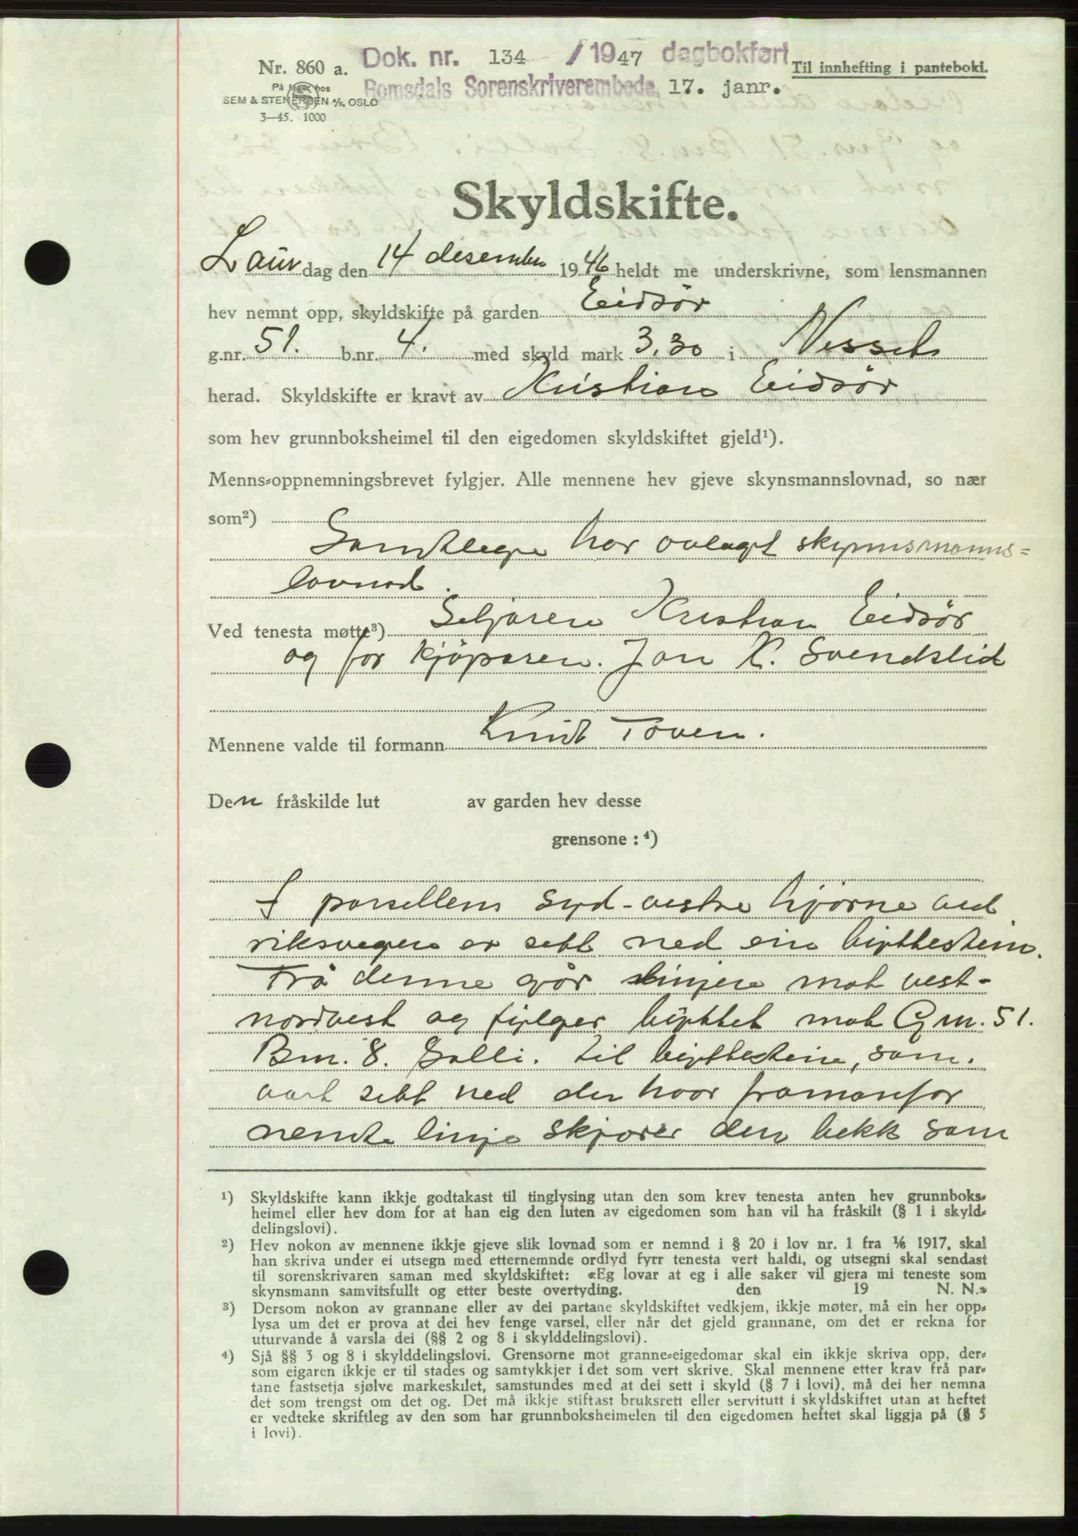 Dok. nr. 134 /1947 dagbokført
Nr. 860 a.
Til innhefting i pantebok.
Romsdals Sorenskriverembede, 17. janr.
SEM & STENERSEN A/S, OSLO
3—45. 1000
Skyldskifte.
Laurdag den 14 desember 1946 heldt me underskrivne, som lensmannen
hev nemnt opp, skyldskifte på garden Eidsør
g.nr. 51. b.nr. 4. med skyld mark 3,30 i Nesset
herad. Skyldskifte er kravt av Kristian Eidsør
som hev grunnboksheimel til den eigedomen skyldskiftet gjeld¹).
Menns-oppnemningsbrevet fylgjer. Alle mennene hev gjeve skynsmannslovnad, so nær
som²)
Samtlege har avlagt skynnsmanns-
lovnad.
Ved tenesta møtte³) Seljaren Kristian Eidsør
og for kjöparen. Jon K. Svendslid
Mennene valde til formann Knut Toven.
Den fråskilde lut av garden hev desse
grensone : ⁴)
I parsellens syd-vestre hjørne ved
riksvegen er sett ned ein byttestein.
Frå denne går linjen mot vest-
nordvest og fylger byttet mot Gnr. 51.
Bnr. 8. Solli. til byttestein, som.
vart sett ned der hvor framanfor
nemte linje skjærer den bekk som
¹) Skyldskifte kann ikkje godtakast til tinglysing utan den som krev tenesta anten hev grunnboks-
heimel eller hev dom for at han eig den luten av eigedomen som han vil ha fråskilt (§ 1 i skyld-
delingslovi).
²) Hev nokon av mennene ikkje gjeve slik lovnad som er nemnd i § 20 i lov nr. 1 fra 1/6 1917, skal
han skriva under ei utsegn med etternemnde ordlyd fyrr tenesta vert haldi, og utsegni skal sendast
til sorenskrivaren saman med skyldskiftet: «Eg lovar at eg i alle saker vil gjera mi teneste som
skynsmann samvitsfullt og etter beste overtyding. den 19 N. N.»
³) Dersom nokon av grannane eller av dei partane skyldskiftet vedkjem, ikkje møter, må ein her opp-
lysa um det er prova at dei hev fenge varsel, eller når det gjeld grannane, om det er rekna for
uturvande å varsla dei (§§ 2 og 8 i skylddelingslovi).
⁴) Sjå §§ 3 og 8 i skylddelingslovi. Grensorne mot granne-eigedomar skal ein ikkje skriva opp, der-
som eigaren ikkje er til stades og samtykkjer i det som vert skrive. Skal mennene etter krav frå par-
tane fastsetja sjølve markeskilet, samstundes med at dei sett i skyld (§ 7 i lovi), må dei her nemna
det som trengst om det og. Det må ikkje stiftast bruksrett eller servitutt i skyldskiftet utan at heftet
er vedteke skriftleg av den som har grunnboksheimelen til den eigedomen heftet skal liggja på (§ 5
i lovi).